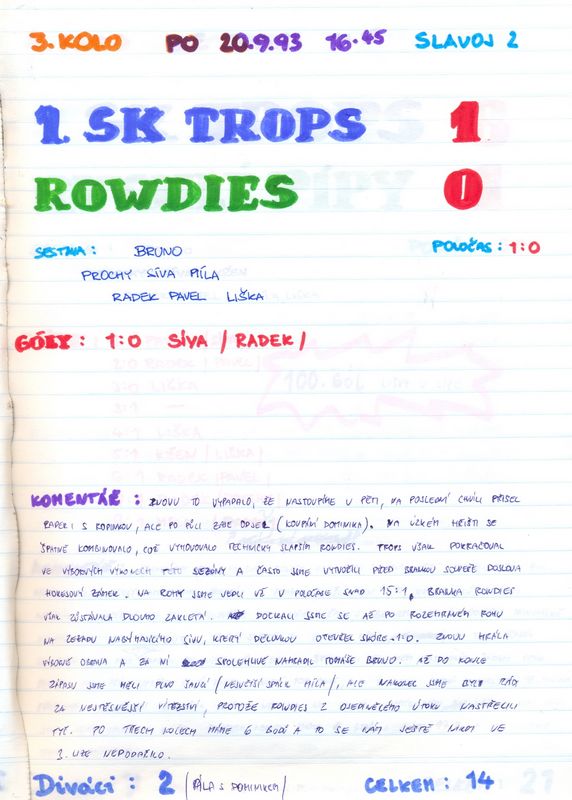 3. KOLO PO 20.9.93 16.45 SLAVOJ 2
1. SK TROPS 1
ROWDIES 0
SESTAVA: BRUNO POLOČAS: 1:0
PROCHY SÍVA MÍLA
RADEK PAVEL LIŠKA
GÓLY: 1:0 SÍVA /RADEK/
KOMENTÁŘ: ZNOVU TO VYPADALO, ŽE NASTOUPÍME V PĚTI, NA POSLEDNÍ CHVÍLI PŘIŠEL
RADEK I S RODINKOU, ALE PO PŮLI ZASE ODJEL (KOUPÁNÍ DOMINIKA). NA ÚZKÉM HŘIŠTI SE
ŠPATNĚ KOMBINOVALO, COŽ VYHOVOVALO TECHNICKY SLABŠÍM ROWDIES. TROPS VŠAK POKRAČOVAL
VE VÝBORNÝCH VÝKONECH TÉTO SEZÓNY A ČASTO JSME VYTVOŘILI PŘED BRANKOU SOUPEŘE DOSLOVA
HOKEJOVÝ ZÁMEK. NA ROHY JSME VEDLI UŽ V POLOČASE SNAD 15:1, BRANKA ROWDIES
VŠAK ZŮSTÁVALA DLOUHO ZAKLETÁ. DOČKALI JSME SE AŽ PO ROZEHRANÉM ROHU
NA ZEZADU NABÍHAJÍCÍHO SÍVU, KTERÝ DĚLOVKOU OTEVŘEL SKÓRE - 1:0. ZNOVU HRÁLA
VÝBORNĚ OBRANA A ZA NÍ SPOLEHLIVĚ NAHRADIL TOMÁŠE BRUNO. AŽ DO KONCE
ZÁPASU JSME MĚLI PLNO ŠANCÍ (NEJVĚTŠÍ MÍLA), ALE NAKONEC JSME BYLI RÁDI
ZA NEJTĚSNĚJŠÍ VÍTĚZSTVÍ, PROTOŽE ROWDIES Z OJEDINĚLÉHO ÚTOKU NASTŘELILI
TYČ. PO TŘECH KOLECH MÁME 6 BODŮ A TO SE NÁM JEŠTĚ NIKDY VE
3. LIZE NEPODAŘILO.
Diváci: 2 (MÍLA S DOMINIKEM) CELKEM: 14